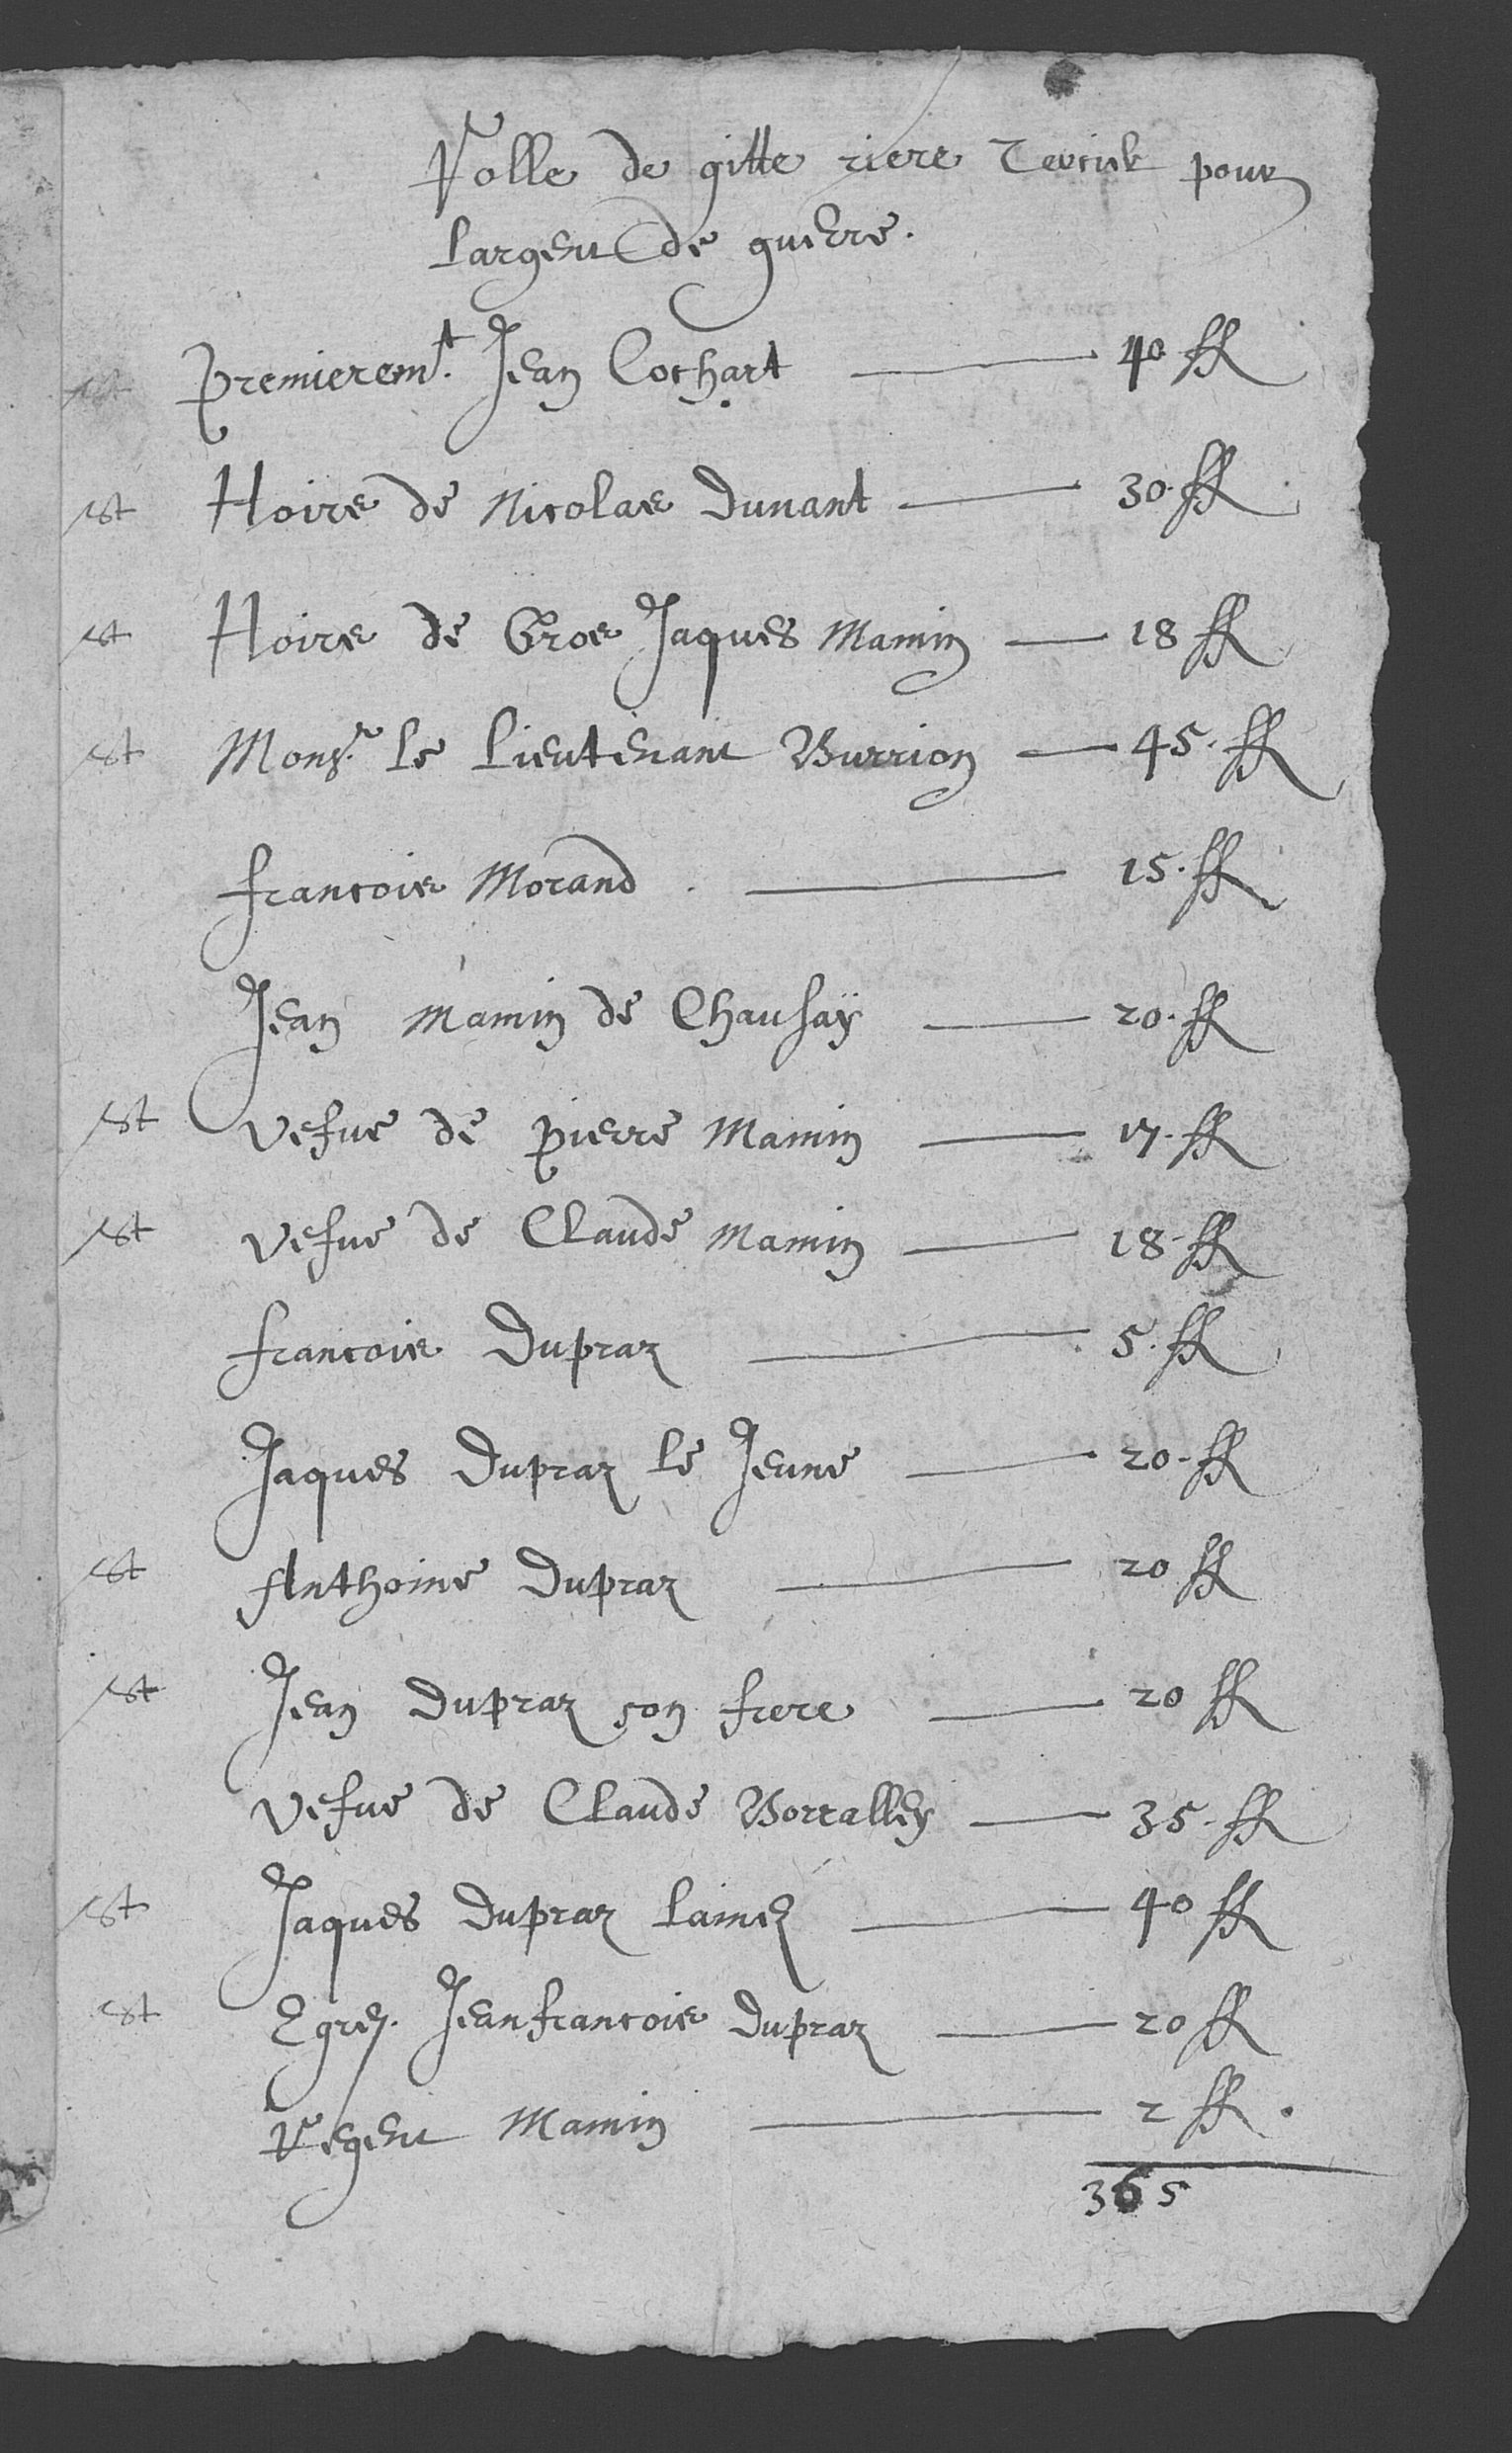 Rolle de gitte riere Tercier pour
largent de guerre.
st premierem.t Jean Cochart 40 ff
st Hoirs de Nicolas Dunant 30 ff
st Hoirs de Gros Jaques Mamin 18 ff
st Mons.r le Lieutenant Burrion 45. ff
francois Morand . 15. ff
Jean Mamin de Chausaÿ 20. ff
st vefue de pierre Mamin 17. ff
st vefue de Claude Mamin 18 ff
francois Dupraz 5. ff
Jaques Dupraz le Jeune 20. ff
st Anthoine Dupraz 20 ff
st Jean Dupraz son frere 20 ff
vefue de Claude Borralley 35. ff
st Jaques Dupraz lainez 40 ff
st Egrez. Jeanfrancois Dupraz 20 ff
Regent Mamin 2 ff .
365